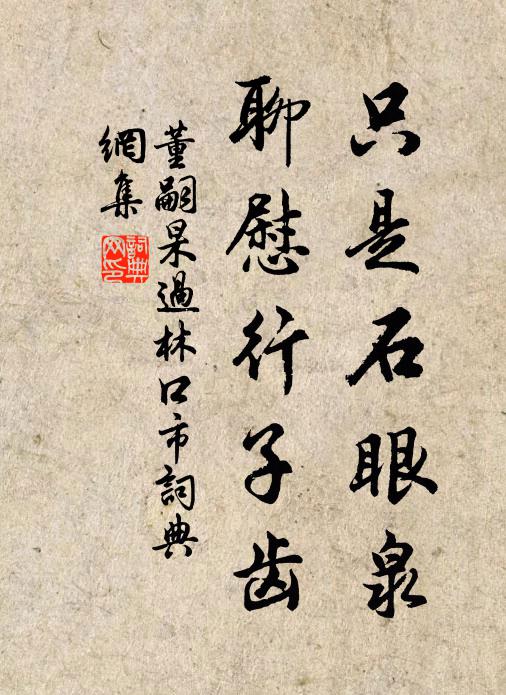 只是石眼泉
聊慰行子齿
董嗣杲過林口市詞典
網集
詞典
网印